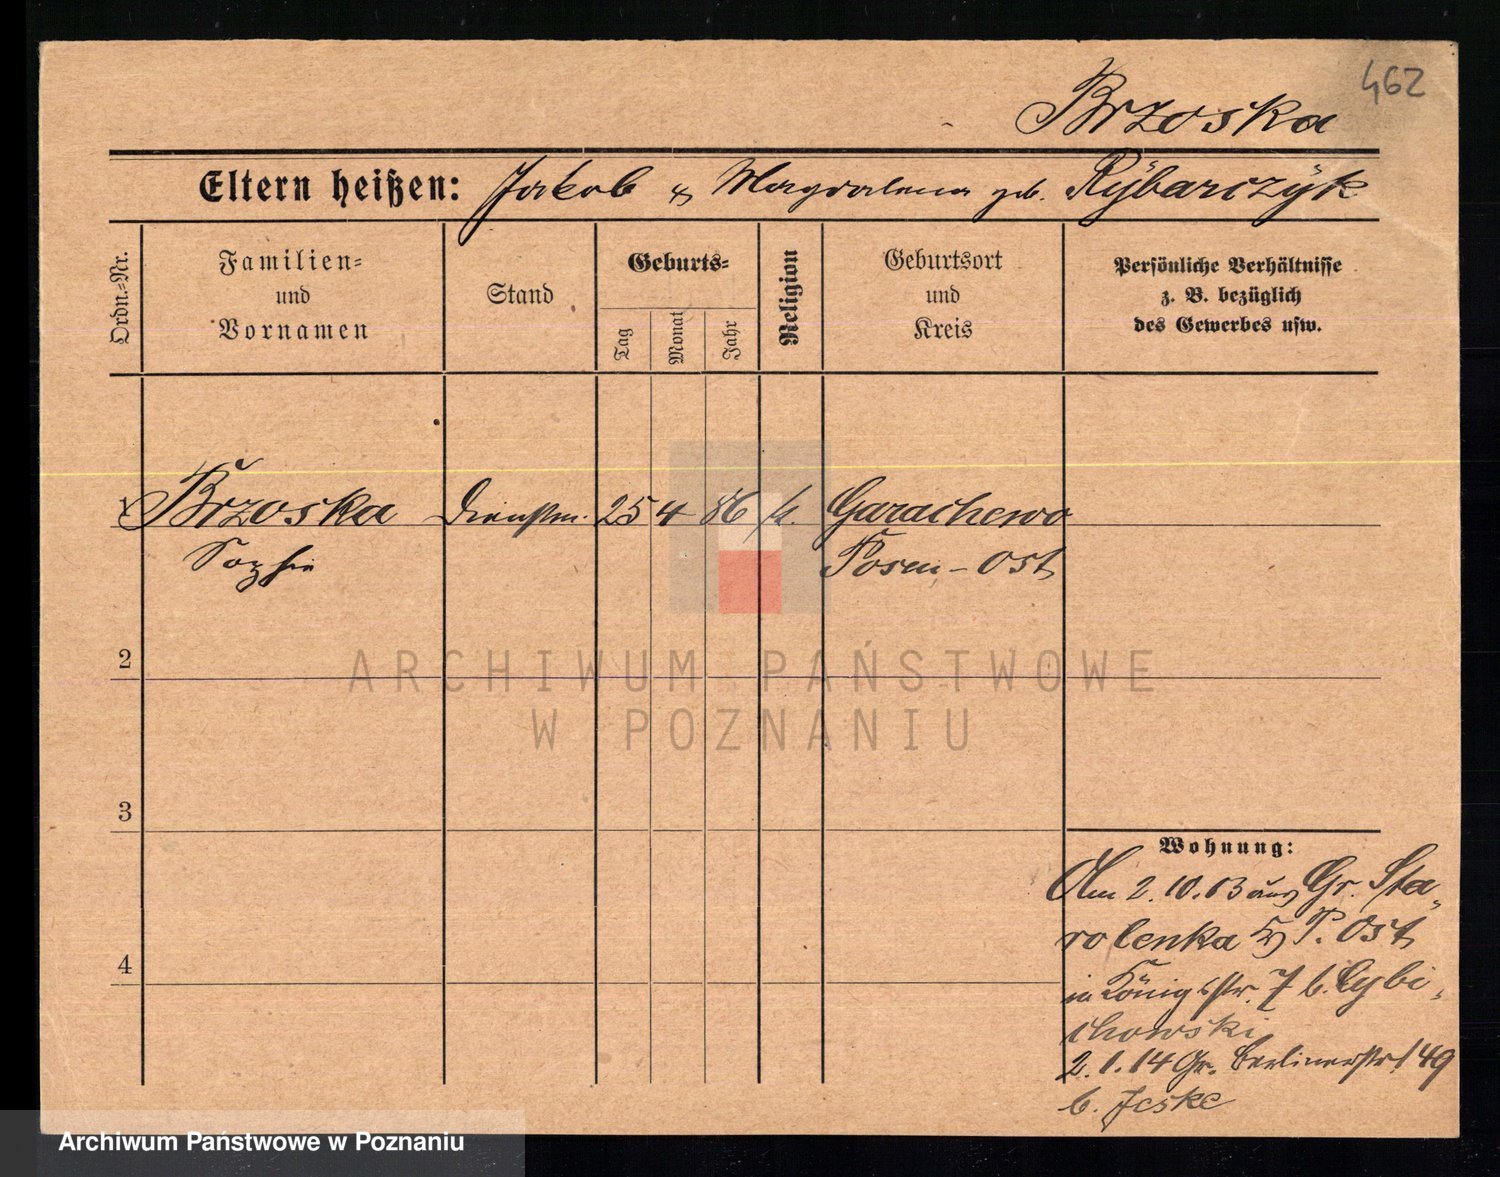 462
Brzoska
Eltern heißen: Jakob & Magdalena geb. Rÿbarczÿk
Ordn.-Nr.
Familien-
und
Vornamen
Stand
Geburts-
Tag
Monat
Jahr
Religion
Geburtsort
und
Kreis
Persönliche Verhältnisse
z. B. bezüglich
des Gewerbes usw.
1 Brzoska Dienstm. 25 4 86 k. Garaschewo
Sophie Posen-Ost
2
3
4
Wohnung:
Am 2.10.13 aus Gr. Sta-
rolenka P. Ost
in Königstr. 7 b. Cybi-
chowski
2.1.14 Gr. Berlinerstr. 49
b. Jeske
ARCHIWUM PAŃSTWOWE
W POZNANIU
Archiwum Państwowe w Poznaniu